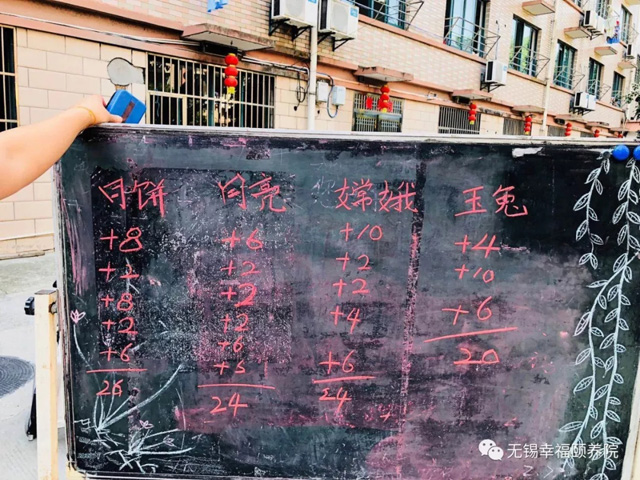 月饼 月亮 嫦娥 玉兔
+8 +6 +10 +4
+2 +2 +2 +10
+8 +2 +2 +6
+2 +2 +4 20
+6 +6 +6
26 +6 24
24
无锡幸福颐养院